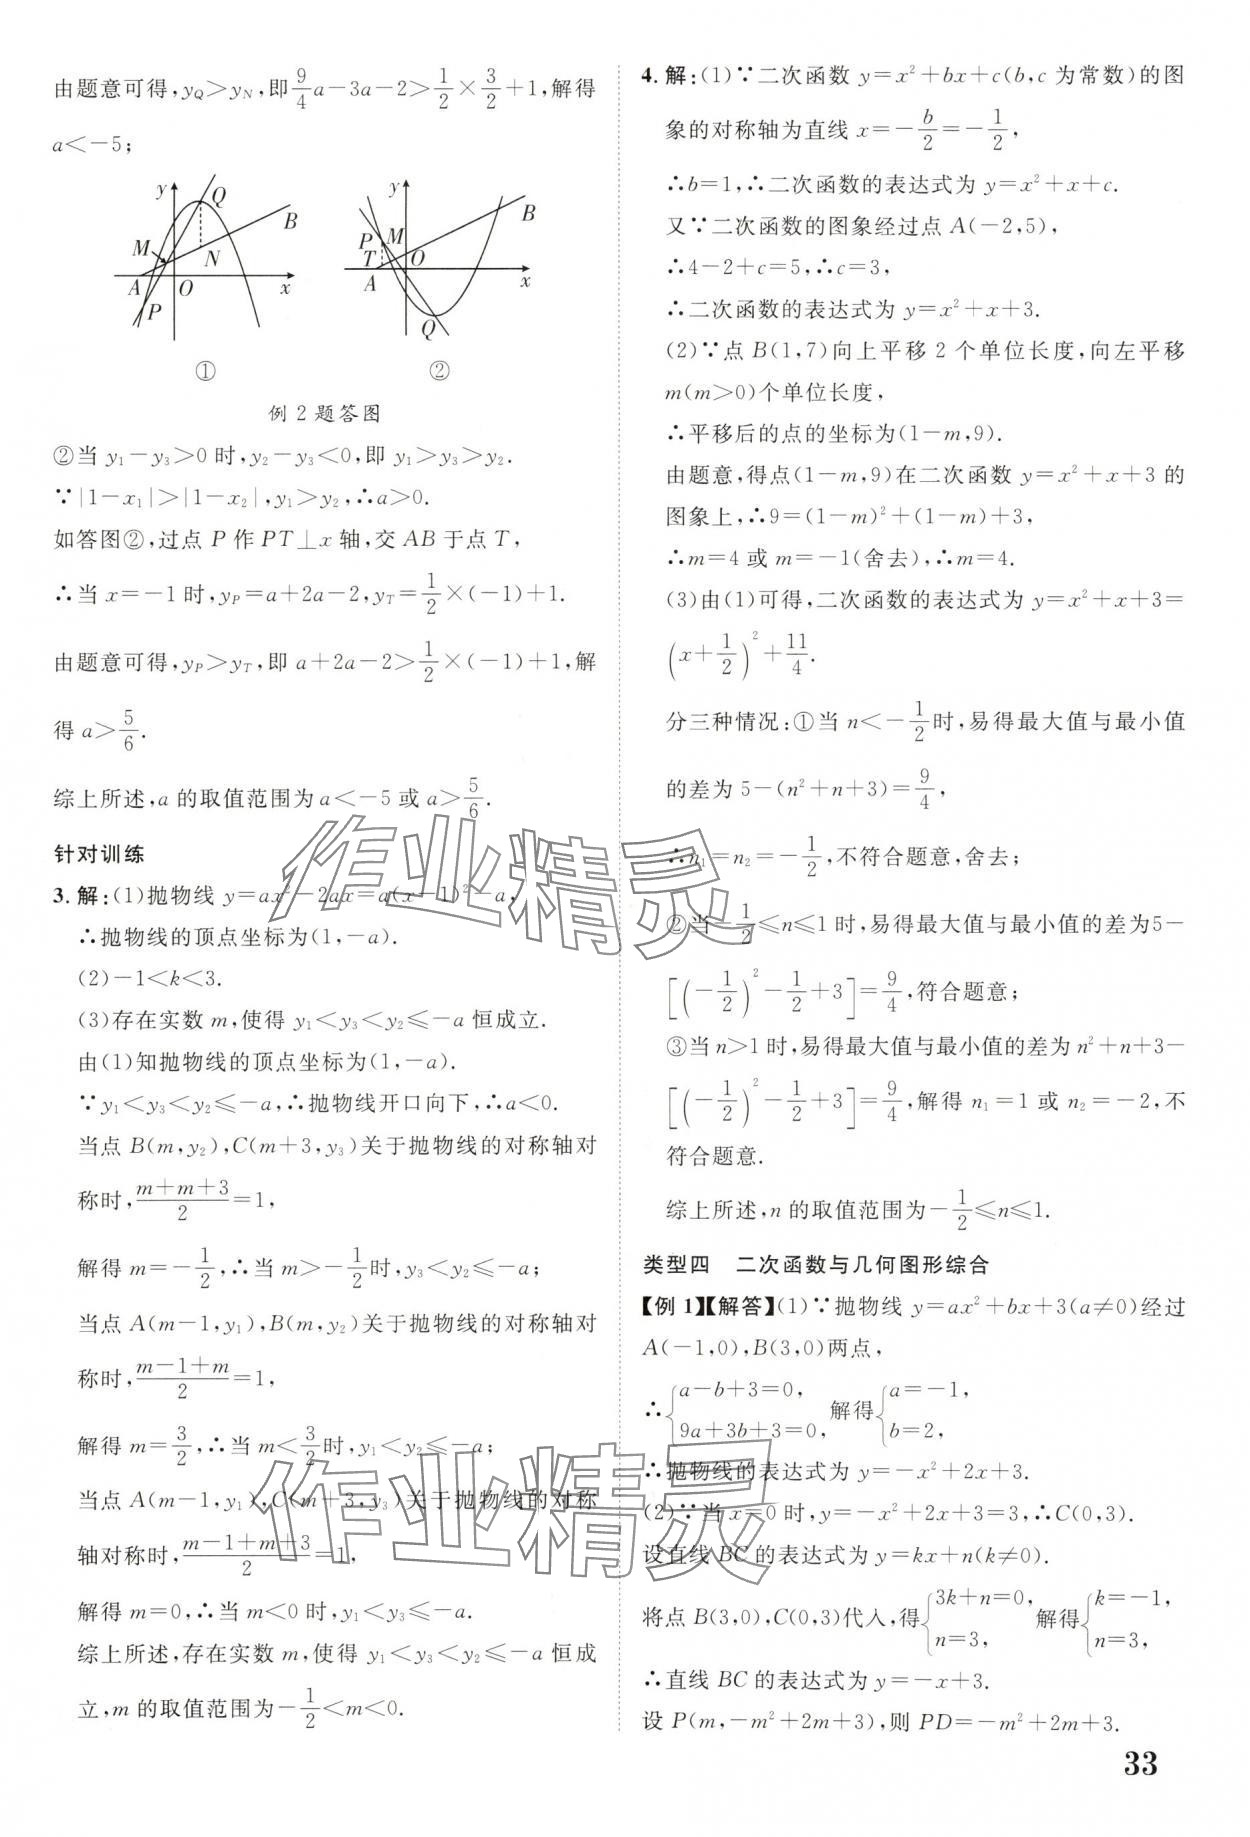 由题意可得,y_Q>y_N,即9/4a-3a-2>1/2×3/2+1,解得
a<-5;
y Q B M N A O x P
①
y P M B T O A x Q
②
例2题答图
②当 y₁-y₃>0时,y₂-y₃<0,即 y₁>y₃>y₂.
∵|1-x₁|>|1-x₂|,y₁>y₂,∴a>0.
如答图②,过点 P 作 PT⊥x 轴,交 AB 于点 T,
∴当 x=-1时,y_P=a+2a-2,y_T=1/2×(-1)+1.
由题意可得,y_P>y_T,即 a+2a-2>1/2×(-1)+1,解
得 a>5/6.
综上所述,a 的取值范围为a<-5或a>5/6.
针对训练
3.解:(1)抛物线 y=ax²-2ax=a(x-1)²-a,
∴抛物线的顶点坐标为(1,-a).
(2)-1<k<3.
(3)存在实数 m,使得 y₁<y₃<y₂≤-a 恒成立.
由(1)知抛物线的顶点坐标为(1,-a).
∵y₁<y₃<y₂≤-a,∴抛物线开口向下,∴a<0.
当点 B(m,y₂),C(m+3,y₃)关于抛物线的对称轴对
称时,(m+m+3)/2=1,
解得 m=-1/2,∴当 m>-1/2时,y₃<y₂≤-a;
当点 A(m-1,y₁),B(m,y₂)关于抛物线的对称轴对
称时,(m-1+m)/2=1,
解得 m=3/2,∴当 m<3/2时,y₁<y₂≤-a;
当点 A(m-1,y₁),C(m+3,y₃)关于抛物线的对称
轴对称时,(m-1+m+3)/2=1,
解得 m=0,∴当 m<0时,y₁<y₃≤-a.
综上所述,存在实数 m,使得 y₁<y₃<y₂≤-a 恒成
立,m 的取值范围为-1/2<m<0.
4.解:(1)∵二次函数 y=x²+bx+c(b,c 为常数)的图
象的对称轴为直线 x=-b/2=-1/2,
∴b=1,∴二次函数的表达式为 y=x²+x+c.
又∵二次函数的图象经过点 A(-2,5),
∴4-2+c=5,∴c=3,
∴二次函数的表达式为 y=x²+x+3.
(2)∵点 B(1,7)向上平移 2 个单位长度,向左平移
m(m>0)个单位长度,
∴平移后的点的坐标为(1-m,9).
由题意,得点(1-m,9)在二次函数 y=x²+x+3 的
图象上,∴9=(1-m)²+(1-m)+3,
∴m=4或 m=-1(舍去),∴m=4.
(3)由(1)可得,二次函数的表达式为 y=x²+x+3=
(x+1/2)²+11/4.
分三种情况:①当 n<-1/2时,易得最大值与最小值
的差为 5-(n²+n+3)=9/4,
∴n₁=n₂=-1/2,不符合题意,舍去;
②当-1/2≤n≤1时,易得最大值与最小值的差为5-
[(-1/2)²-1/2+3]=9/4,符合题意;
③当n>1时,易得最大值与最小值的差为 n²+n+3-
[(-1/2)²-1/2+3]=9/4,解得 n₁=1 或 n₂=-2,不
符合题意.
综上所述,n 的取值范围为-1/2≤n≤1.
类型四 二次函数与几何图形综合
【例1】【解答】(1)∵抛物线 y=ax²+bx+3(a≠0)经过
A(-1,0),B(3,0)两点,
∴{a-b+3=0, 9a+3b+3=0, 解得{a=-1, b=2,
∴抛物线的表达式为 y=-x²+2x+3.
(2)∵当 x=0时,y=-x²+2x+3=3,∴C(0,3).
设直线 BC 的表达式为 y=kx+n(k≠0).
将点 B(3,0),C(0,3)代入,得{3k+n=0, n=3, 解得{k=-1, n=3,
∴直线 BC 的表达式为 y=-x+3.
设 P(m,-m²+2m+3),则 PD=-m²+2m+3.
33
作业精灵
作业精灵